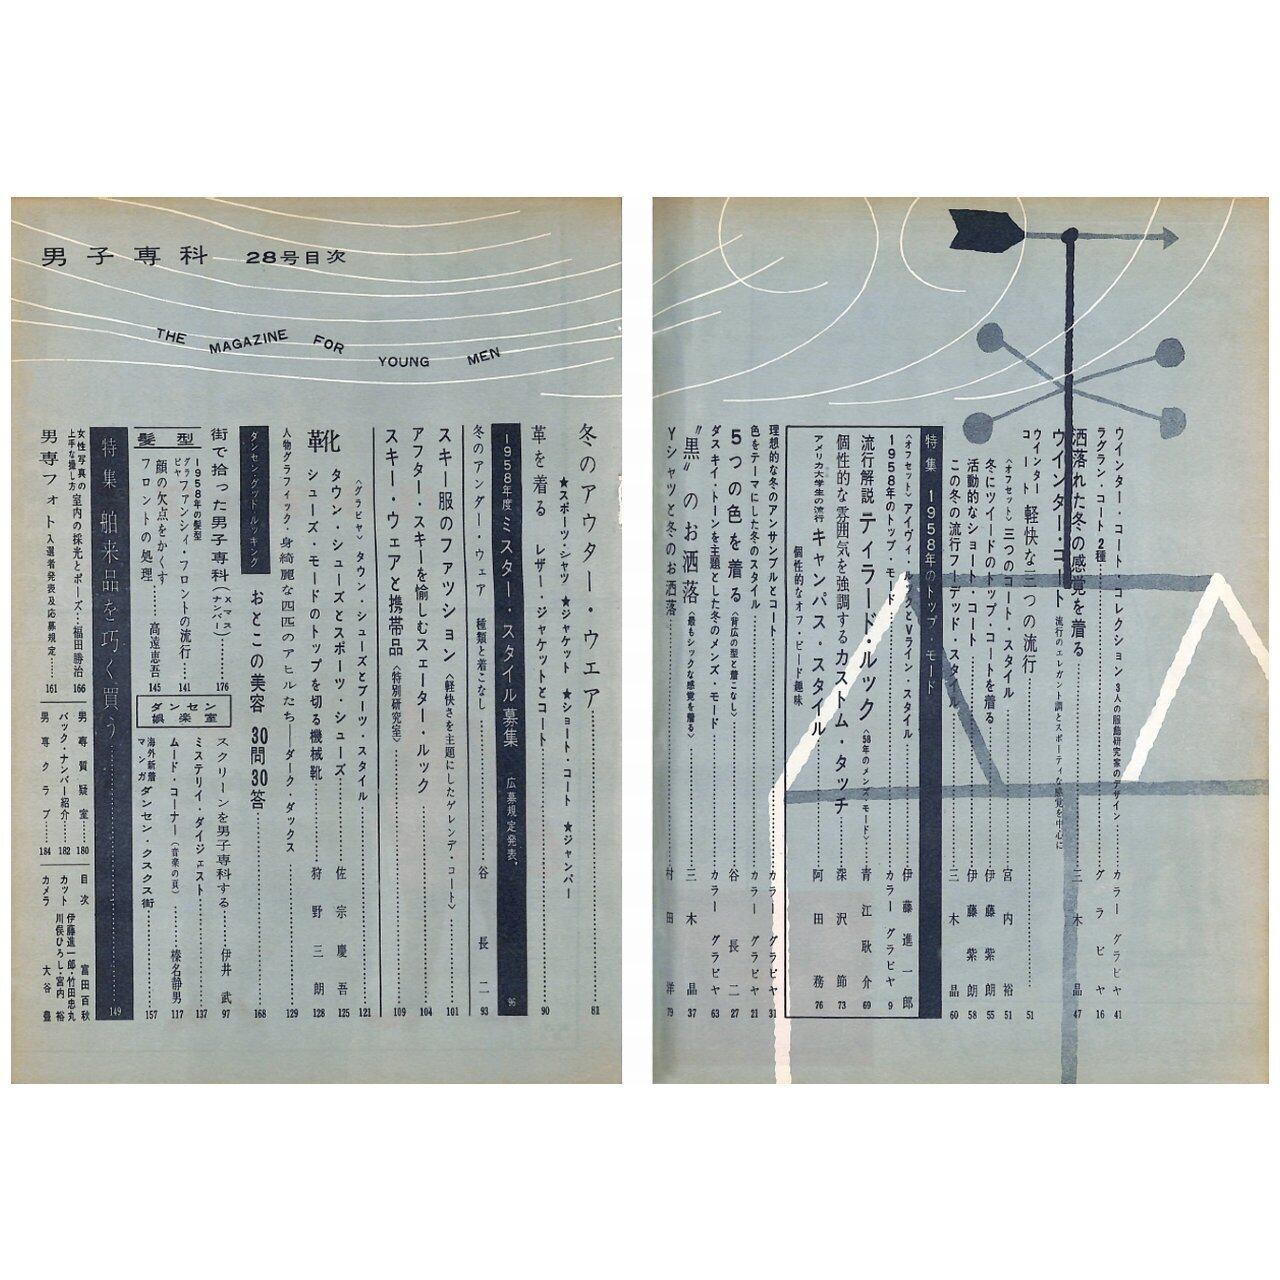 男子専科 28号目次
THE MAGAZINE FOR YOUNG MEN
ウインター・コート・コレクション 3人の服飾研究家のデザイン カラーグラビヤ 41
ラグラン・コート2種 グラビヤ 16
洒落れた冬の感覚を着る 三木晶 47
ウインター・コート 流行のエレガント調とスポーティな感覚を中心に
ウインターコート 軽快な三つの流行 51
〈オフセット〉三つのコート・スタイル 宮内裕 51
冬にツイードのトップ・コートを着る 伊藤紫朗 55
活動的なショート・コート 伊藤紫朗 58
この冬の流行フーデッド・スタイル 三木晶 60
特集 1958年のトップ・モード
〈オフセット〉アイヴィ・ルックとVライン・スタイル 伊藤進一郎
1958年のトップ・モード カラーグラビヤ 9
流行解説 テイラード・ルック〈58年のメンズ・モード〉 青江耿介 69
個性的な雰囲気を強調するカストム・タッチ 深沢節 73
アメリカ大学生の流行 キャンパス・スタイル 阿田務 76
個性的なオフ・ビード趣味
理想的な冬のアンサンブルとコート カラーグラビヤ 31
色をテーマにした冬のスタイル カラーグラビヤ 21
5つの色を着る〈背広の型と着こなし〉 谷長二 27
ダスキイ・トーンを主題とした冬のメンズ・モード カラーグラビヤ 63
"黒"のお洒落〈最もシックな感覚を着る〉 三木晶 37
Yシャツと冬のお洒落 村田洋 79
冬のアウター・ウェア 81
★スポーツ・シャツ ★ジャケット ★ショート・コート ★ジャンパー
革を着る レザー・ジャケットとコート 90
1958年度ミスター・スタイル募集 応募規定発表 96
冬のアンダー・ウェア 種類と着こなし 谷長二 93
スキー服のファッション〈軽快さを主題にしたゲレンデ・コート〉 101
アフター・スキーを愉しむスェーター・ルック 104
スキー・ウェアと携帯品〈特別研究室〉 109
〈グラビヤ〉タウン・シューズとブーツ・スタイル 121
靴
タウン・シューズとスポーツ・シューズ 佐宗慶吾 125
シューズ・モードのトップを切る機械靴 狩野三朗 128
人物グラフィック・身綺麗な四匹のアヒルたち――ダーク・ダックス 129
ダンセン・グッド・ルッキング
おとこの美容 30問30答 168
街で拾った男子専科(Xマス・ナンバー) 176
髪型
1958年の髪型
グラビヤ ファンシィ・フロントの流行 141
顔の欠点をかくす
フロントの処理 高遠恵吾 145
ダンセン娯楽室
スクリーンを男子専科する 伊井武 97
ミステリイ・ダイジェスト 137
ムード・コーナー(音楽の頁) 榛名静男 117
海外新着マンガ ダンセン・クスクス街 157
特集 舶来品を巧く買う 149
女性写真の上手な撮し方 室内の採光とポーズ 福田勝治 166
男専フォト入選者発表及応募規定 161
男専質疑室 180
バック・ナンバー紹介 182
男専クラブ 184
目次 富田百秋
カット 伊藤進一郎・竹田忠丸
川俣ひろし・宮内裕
カメラ 大谷豊